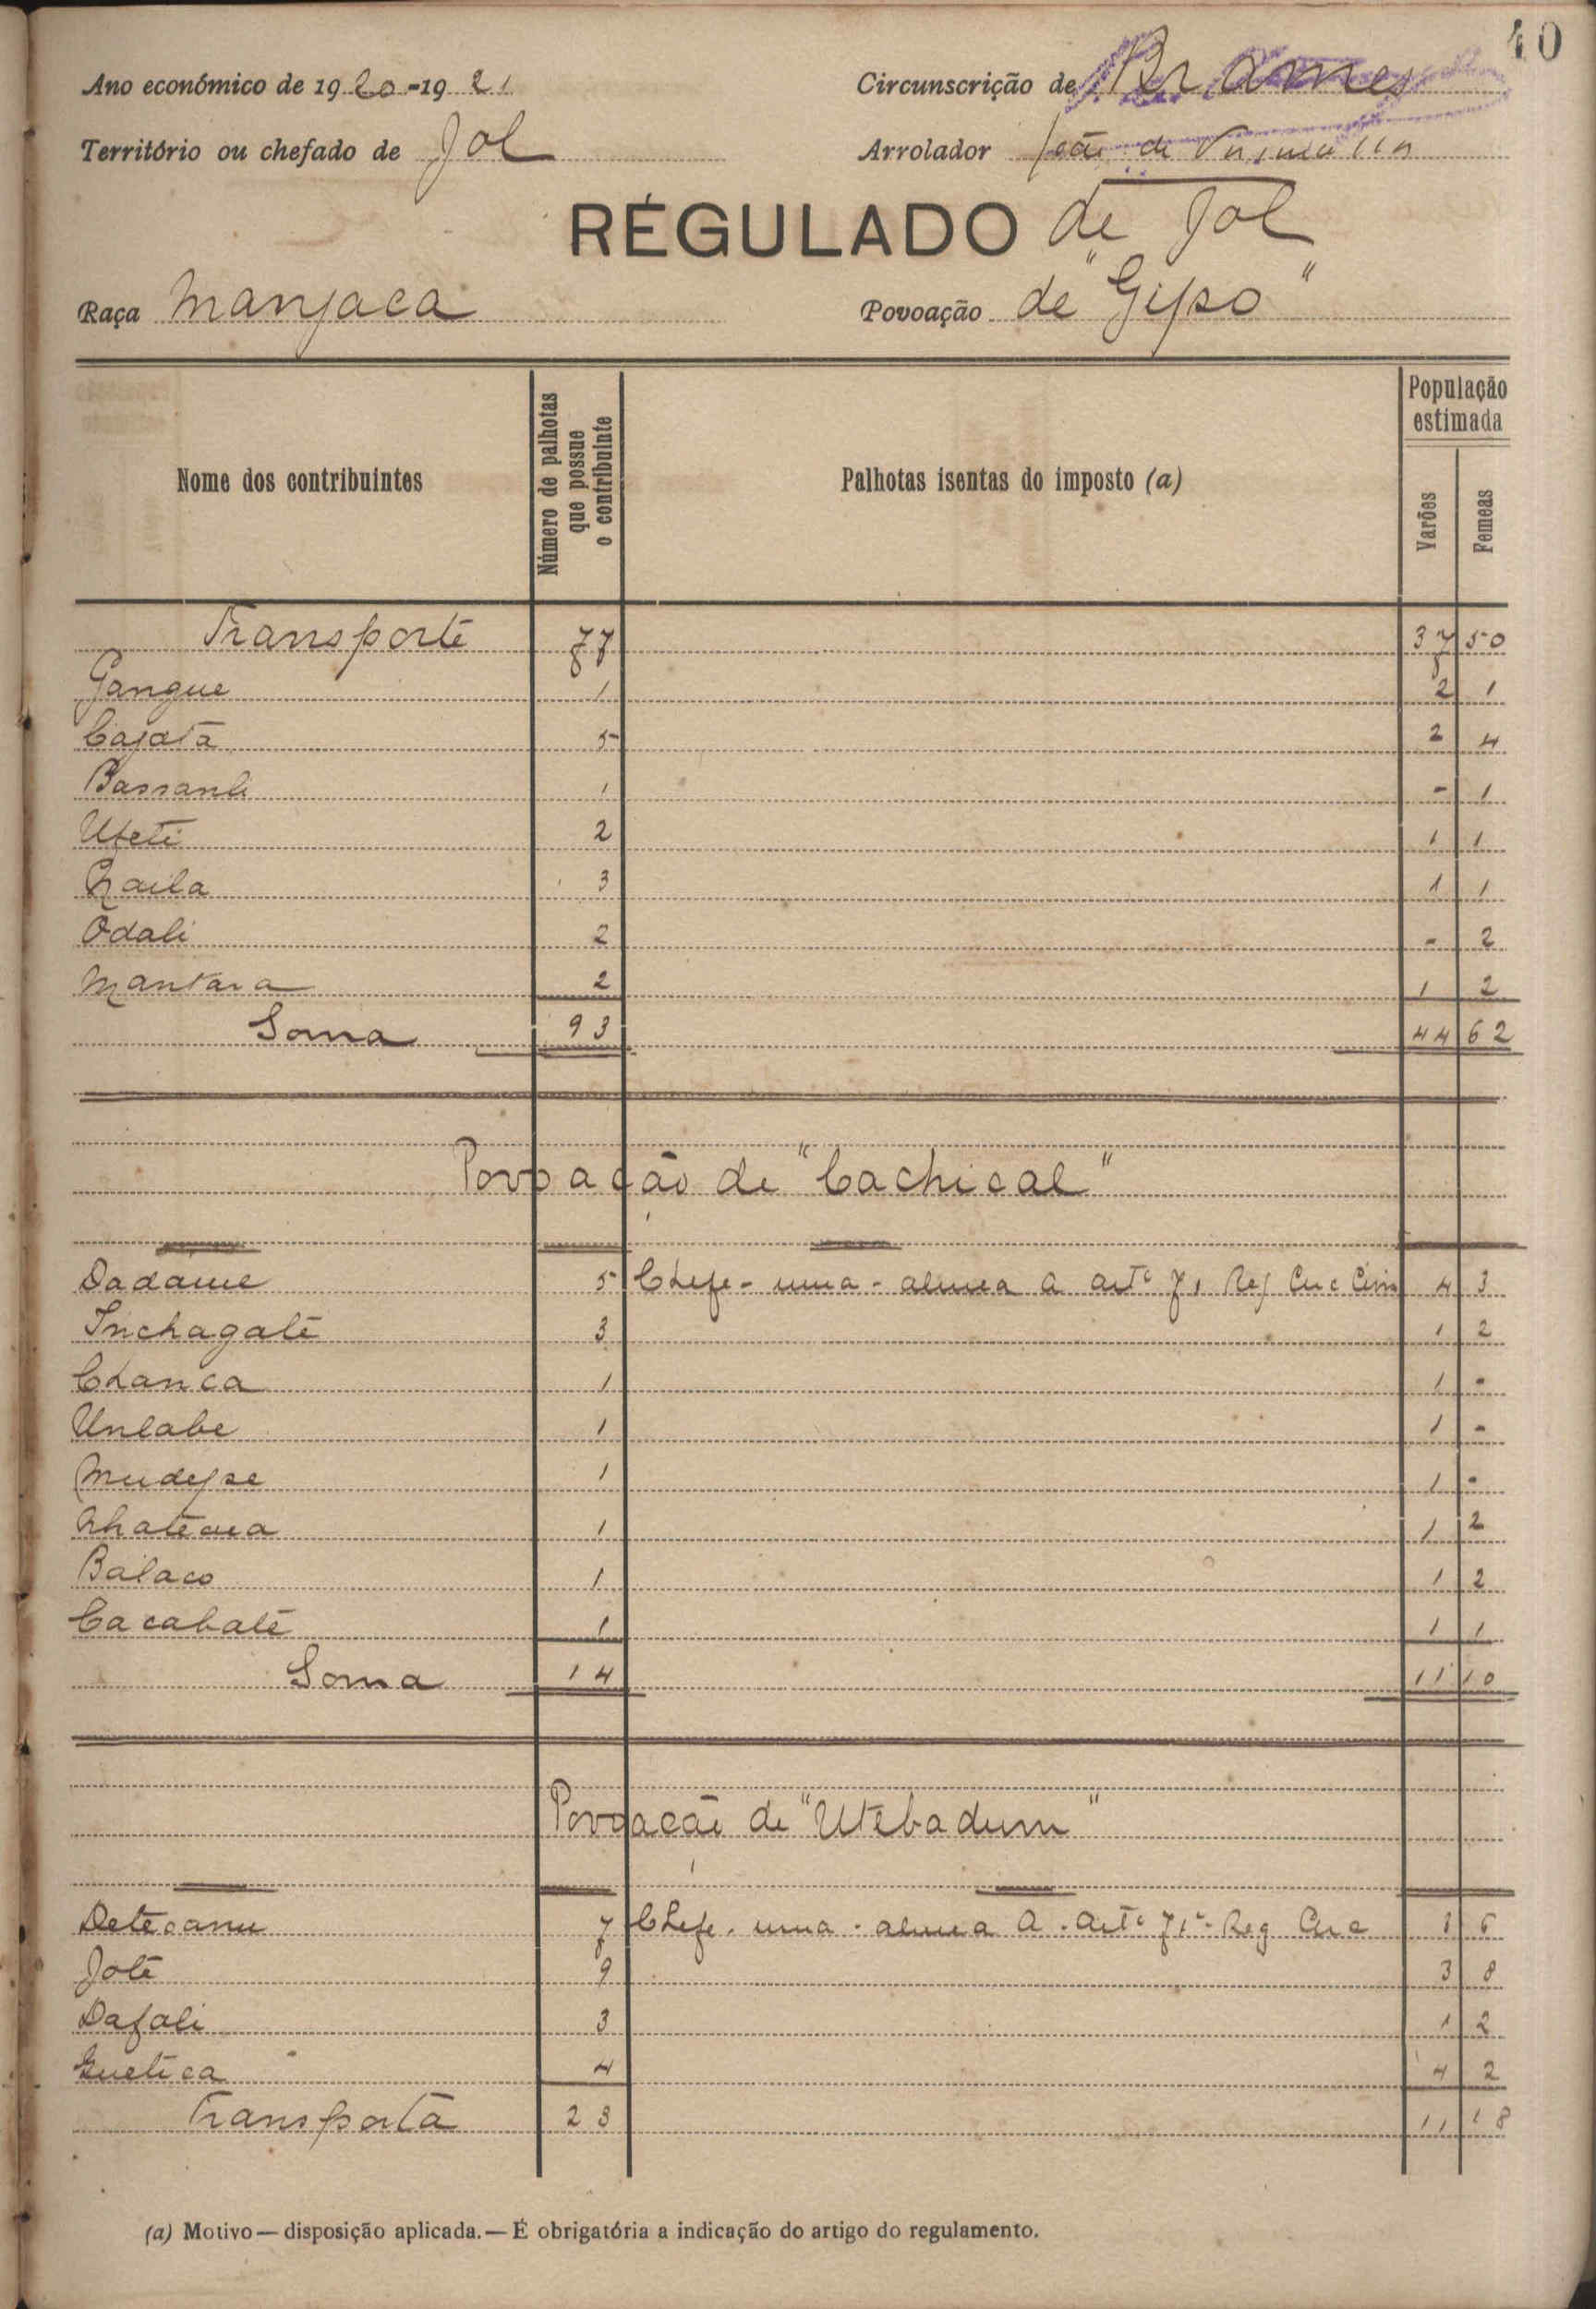 40
Ano económico de 1920-1921 Circunscrição de Brames
Território ou chefado de Jol Arrolador João de
RÉGULADO de Jol
Raça Manjaca Povoação de "Gipso"
Nome dos contribuintes Número de palhotas que possue o contribuinte Palhotas isentas do imposto (a) População estimada Varões Femeas
Transporte 77 37 50
Gangue 1 2 1
Cajata 5 2 4
Bassanli 1 - 1
Uteti 2 1 1
Naila 3 1 1
Odali 2 - 2
Mantara 2 1 2
Soma 93 44 62
Povoação de "Cachical"
Dadame 5 Chefe - uma - alinea a artº 71 Reg Circ Civis 4 3
Inchagaté 3 1 2
Chanca 1 1 -
Unlabe 1 1 -
Mudepse 1 1 -
1 1 2
Balaco 1 1 2
Cacabaté 1 1 1
Soma 14 11 10
Povoação de "Utebadum"
Detecanu 7 Chefe - uma - alinea a - artº 71º - Reg Circ 3 6
Joté 9 3 8
Dafali 3 1 2
Guetica 4 4 2
Transporta 23 11 18
(a) Motivo — disposição aplicada. — É obrigatória a indicação do artigo do regulamento.